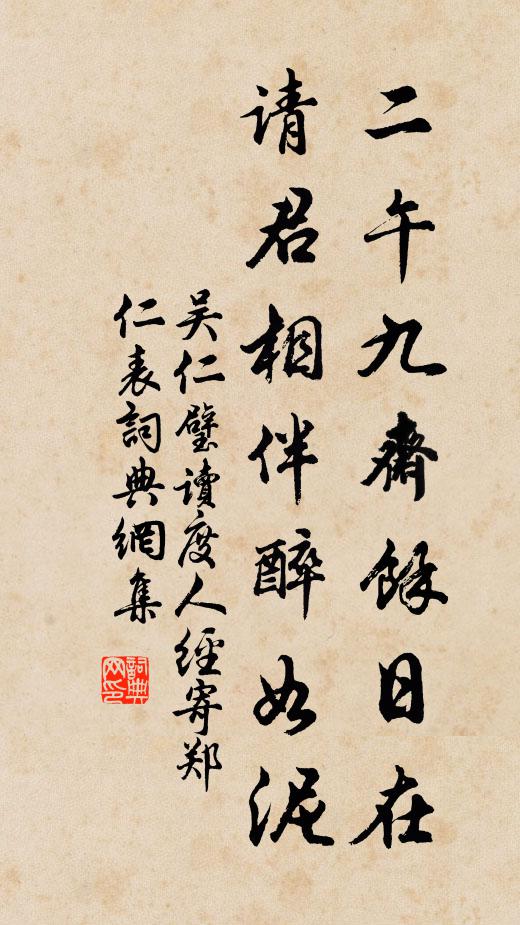 二午九齋餘日在
请君相伴醉如泥
吴仁璧讀度人經寄郑
仁表詞典網集
詞典网印